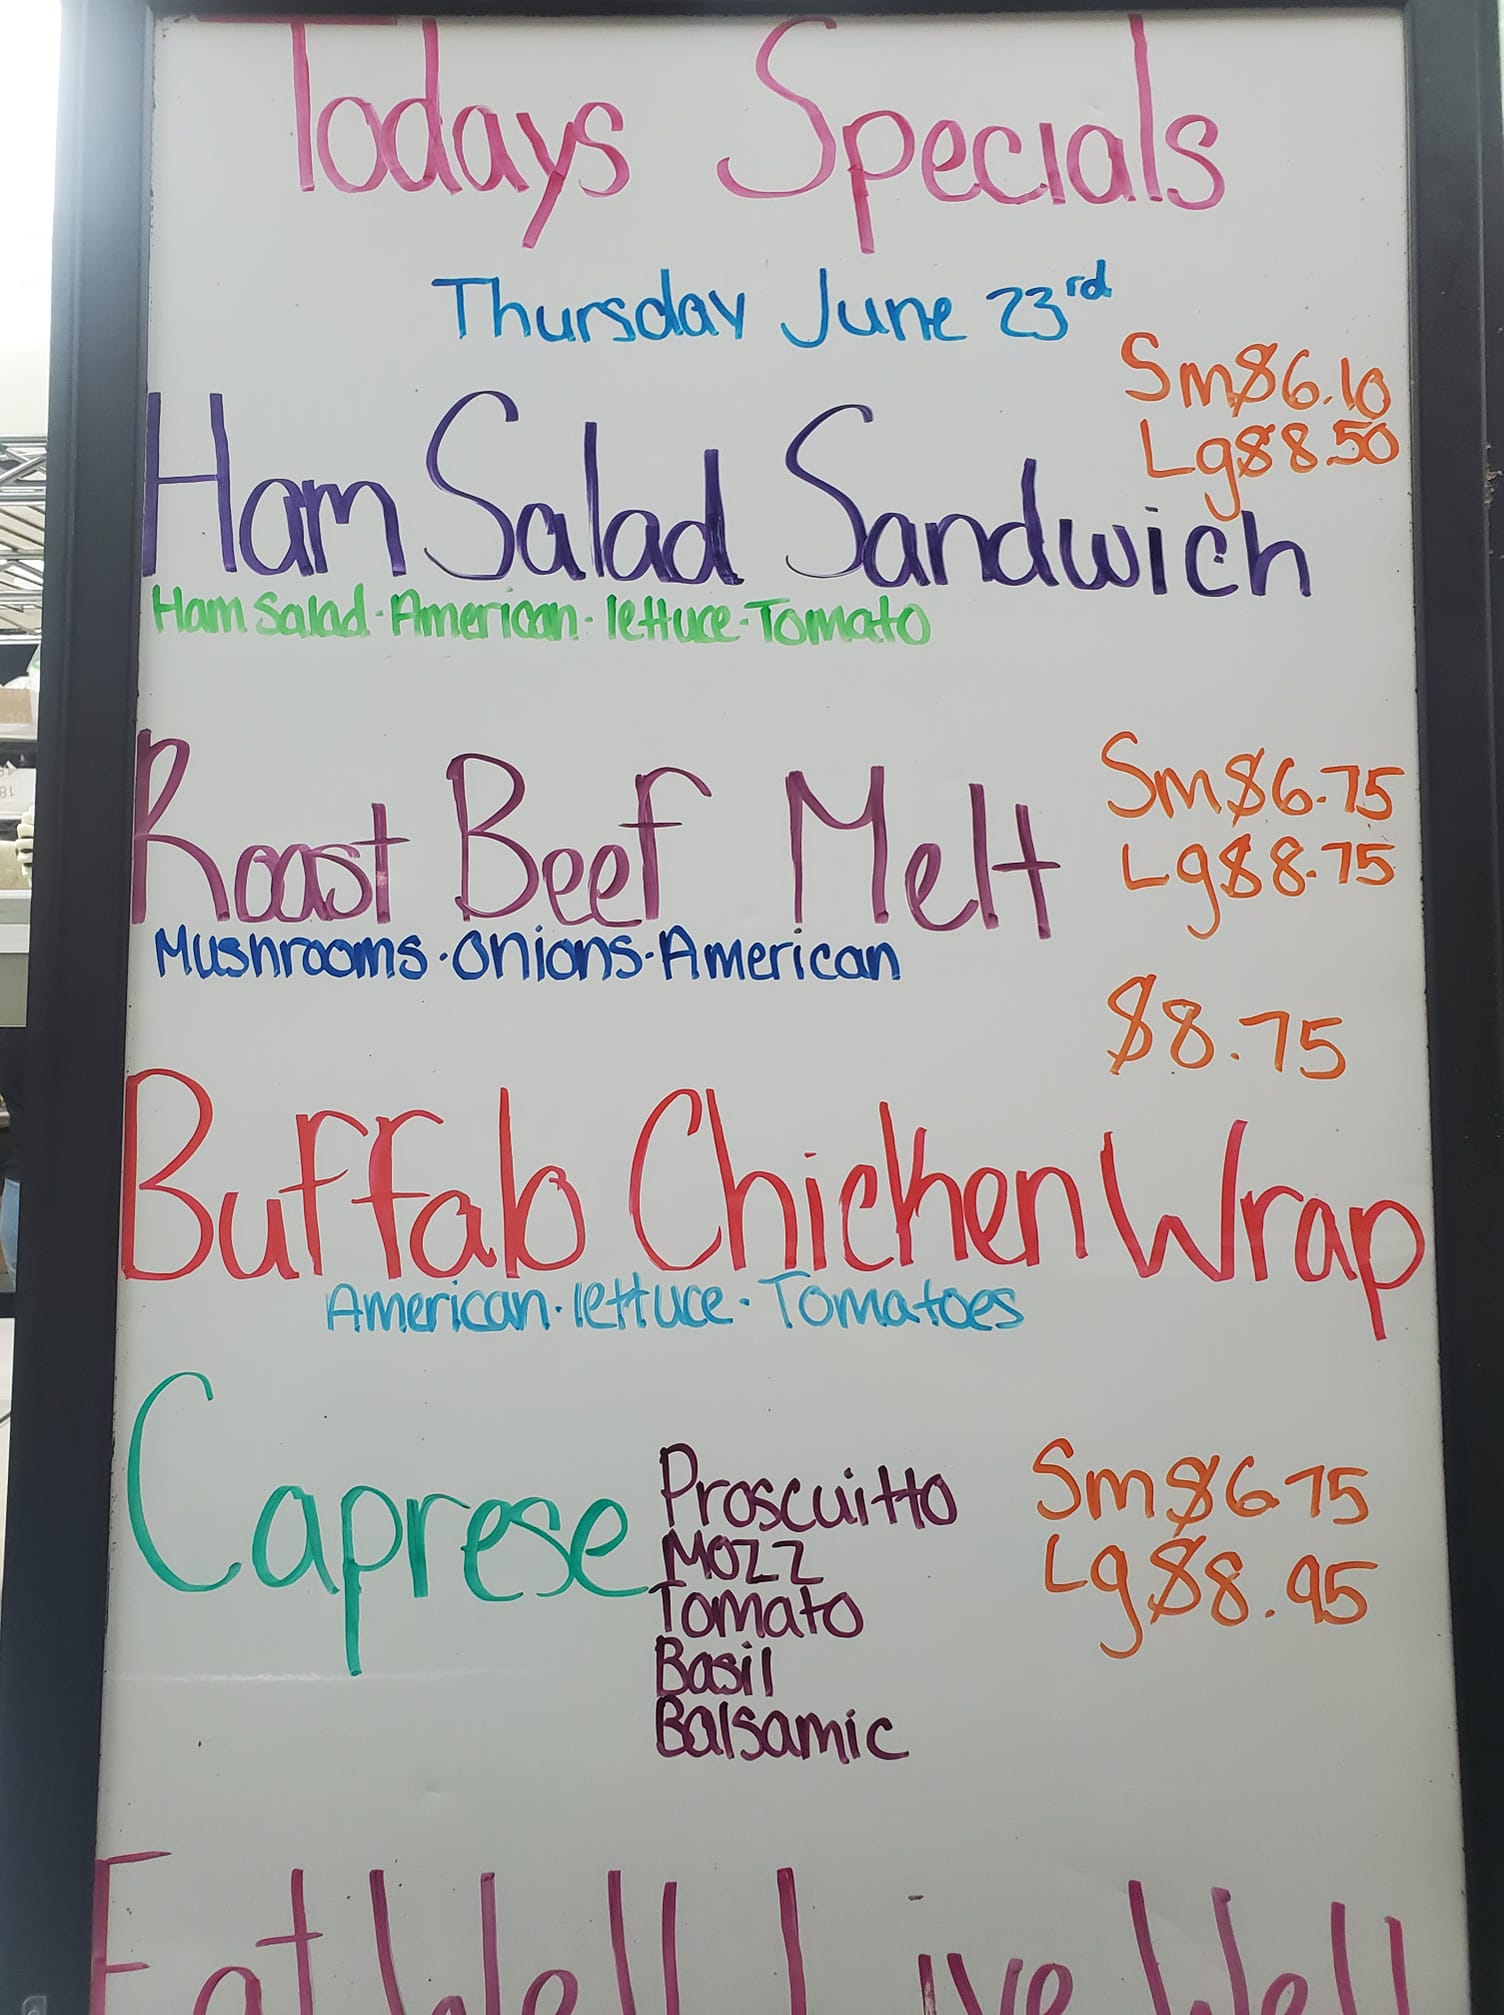 Todays Specials
Thursday June 23rd
Sm$6.10
Lg$8.50
Ham Salad Sandwich
Ham Salad · American · lettuce · Tomato
Sm$6.75
Lg$8.75
Roast Beef Melt
Mushrooms · Onions · American
$8.75
Buffalo Chicken Wrap
American · lettuce · Tomatoes
Caprese
Proscuitto
Mozz
Tomato
Basil
Balsamic
Sm$6.75
Lg$8.95
Eat Well Live Well